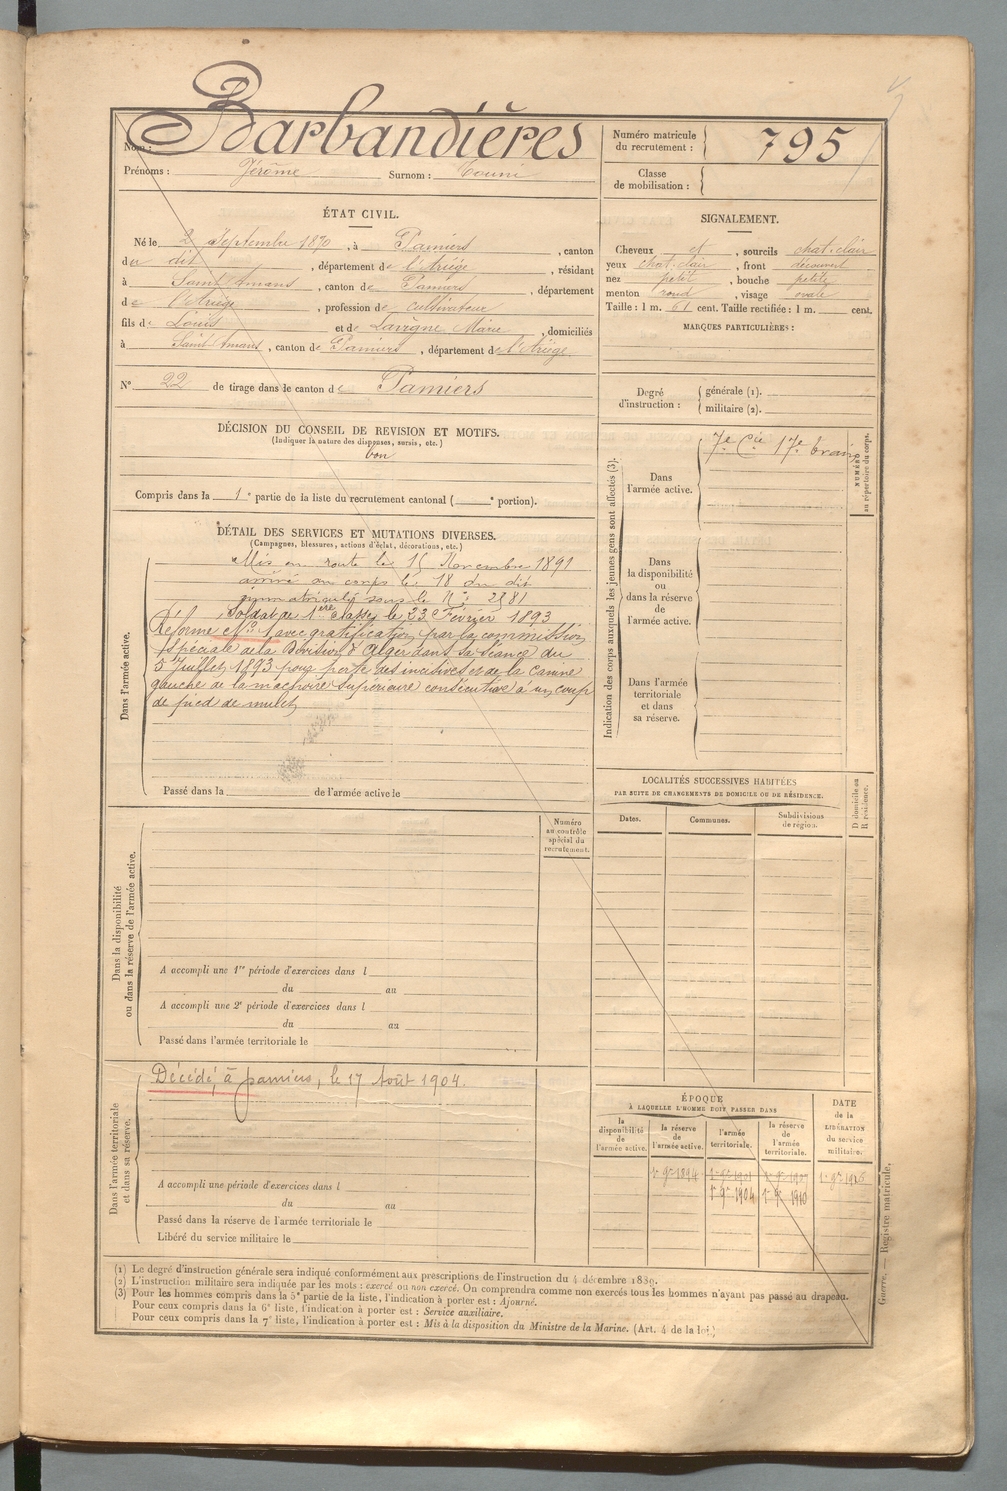 Nom : Barbandières
Prénoms : Jérôme Surnom : Touni
Numéro matricule du recrutement : 795
Classe de mobilisation :
ÉTAT CIVIL.
Né le 2 Septembre 1870, à Pamiers, canton
du dit, département de l'Ariège, résidant
à Saint Amans, canton de Pamiers, département
de l'Ariège, profession de cultivateur
fils de Louis et de Lavigne Marie, domiciliés
à Saint Amans, canton de Pamiers, département de l'Ariège
N° 22 de tirage dans le canton de Pamiers
SIGNALEMENT.
Cheveux et, sourcils chat. clair
yeux chat. clair, front découvert
nez petit, bouche petite
menton rond, visage ovale
Taille : 1 m. 61 cent. Taille rectifiée : 1 m. cent.
MARQUES PARTICULIÈRES :
Degré d'instruction :
générale (1).
militaire (2).
DÉCISION DU CONSEIL DE REVISION ET MOTIFS.
(Indiquer la nature des dispenses, sursis, etc.)
bon
Compris dans la 1e partie de la liste du recrutement cantonal ( e portion).
DÉTAIL DES SERVICES ET MUTATIONS DIVERSES.
(Campagnes, blessures, actions d'éclat, décorations, etc.)
Dans l'armée active.
Mis en route le 15 Novembre 1891
arrivé au corps le 18 du dit
immatriculé sous le N° 2881
Soldat de 1ère classe le 23 Février 1893
Réformé N° 1 avec gratification par la commission
spéciale de la Division d'Alger dans sa séance du
5 Juillet 1893 pour perte des incisives et de la canine
gauche de la machoire supérieure consécutive à un coup
de pied de mulet
Passé dans la de l'armée active le
Indication des corps auxquels les jeunes gens sont affectés (3).
Dans l'armée active.
7e Cie 17e train
NUMÉRO au répertoire du corps.
Dans la disponibilité ou dans la réserve de l'armée active.
Dans l'armée territoriale et dans sa réserve.
LOCALITÉS SUCCESSIVES HABITÉES
PAR SUITE DE CHANGEMENTS DE DOMICILE OU DE RÉSIDENCE.
Dates.
Communes.
Subdivisions de région.
D domicile ou R résidence.
Dans la disponibilité ou dans la réserve de l'armée active.
Numéro au contrôle spécial du recrutement.
A accompli une 1re période d'exercices dans l
du au
A accompli une 2e période d'exercices dans l
du au
Passé dans l'armée territoriale le
Dans l'armée territoriale et dans sa réserve.
Décédé, à pamiers, le 17 Août 1904.
A accompli une période d'exercices dans l
du au
Passé dans la réserve de l'armée territoriale le
Libéré du service militaire le
ÉPOQUE
À LAQUELLE L'HOMME DOIT PASSER DANS
la disponibilité de l'armée active.
la réserve de l'armée active.
l'armée territoriale.
la réserve de l'armée territoriale.
DATE de la LIBÉRATION du service militaire.
1er 9bre 1894 1er 9bre 1901 1er 9bre 1907
1er 9bre 1904 1er 9bre 1910
Guerre. — Registre matricule.
(1) Le degré d'instruction générale sera indiqué conformément aux prescriptions de l'instruction du 4 décembre 1889.
(2) L'instruction militaire sera indiquée par les mots : exercé ou non exercé. On comprendra comme non exercés tous les hommes n'ayant pas passé au drapeau.
(3) Pour les hommes compris dans la 5e partie de la liste, l'indication à porter est : Ajourné.
Pour ceux compris dans la 6e liste, l'indication à porter est : Service auxiliaire.
Pour ceux compris dans la 7e liste, l'indication à porter est : Mis à la disposition du Ministre de la Marine. (Art. 4 de la loi.)